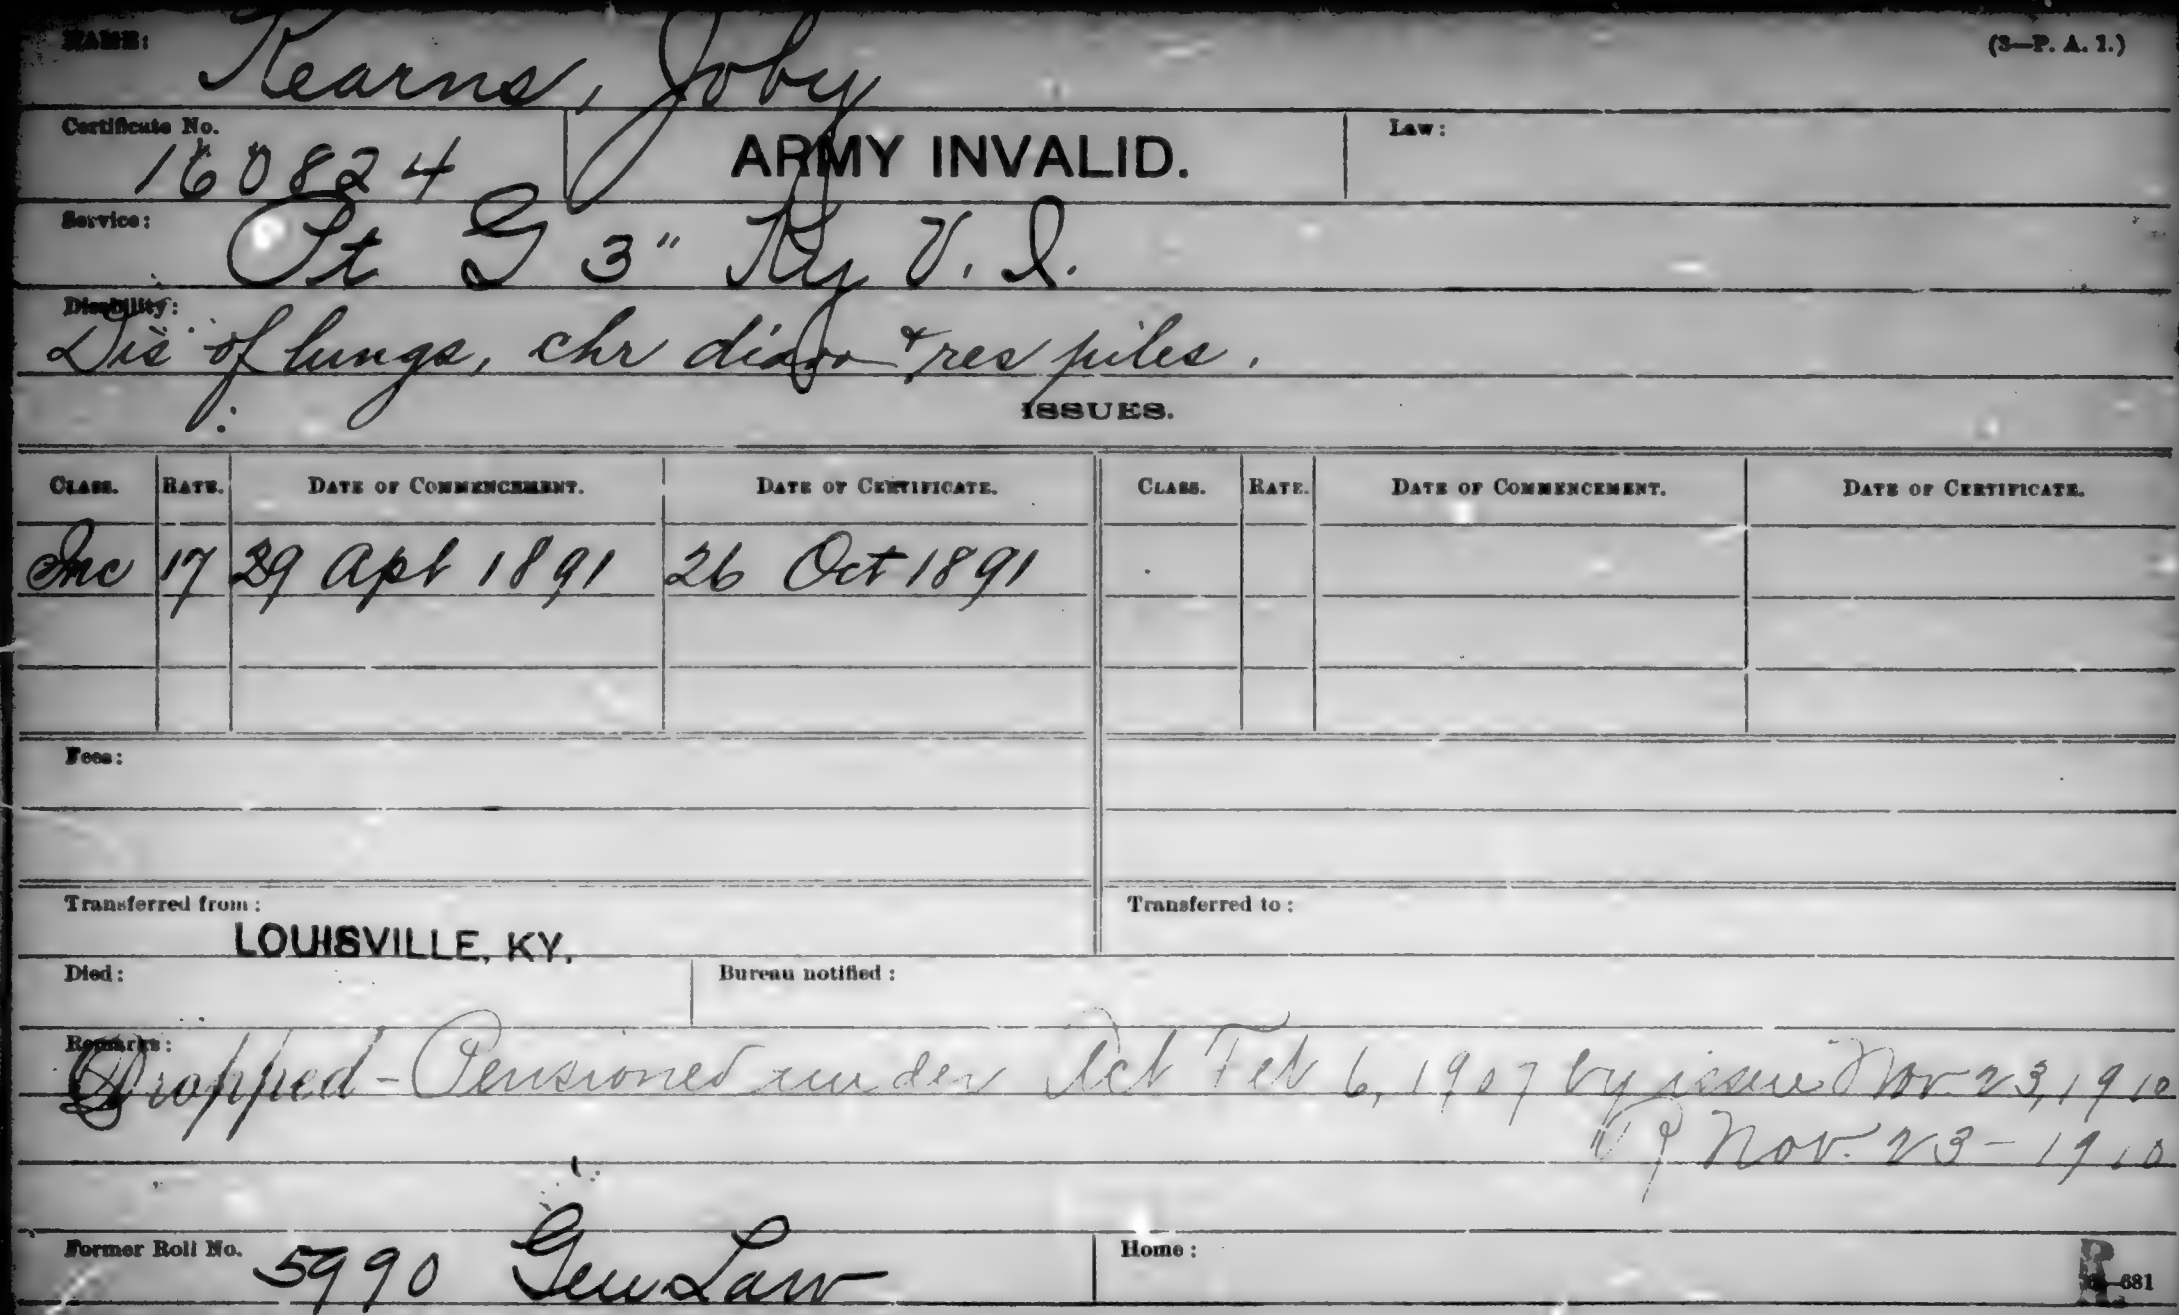 NAME: Kearns, Joby (3—P. A. I.)
Certificate No. 160824 ARMY INVALID. Law:
Service: Pt G 3" Ky V. I.
Disability:
Dis of lungs, chr diarr & res piles.
ISSUES.
CLASS. RATE. DATE OF COMMENCEMENT. DATE OF CERTIFICATE. CLASS. RATE. DATE OF COMMENCEMENT. DATE OF CERTIFICATE.
Inc 17 29 Apl 1891 26 Oct 1891
Fees:
Transferred from: Transferred to:
LOUISVILLE, KY.
Died: Bureau notified:
Remarks:
Dropped - Pensioned under Act Feb 6, 1907 by issue Nov 23, 1910
Nov. 23 - 1910
Former Roll No. 5990 Gen Law Home:
681